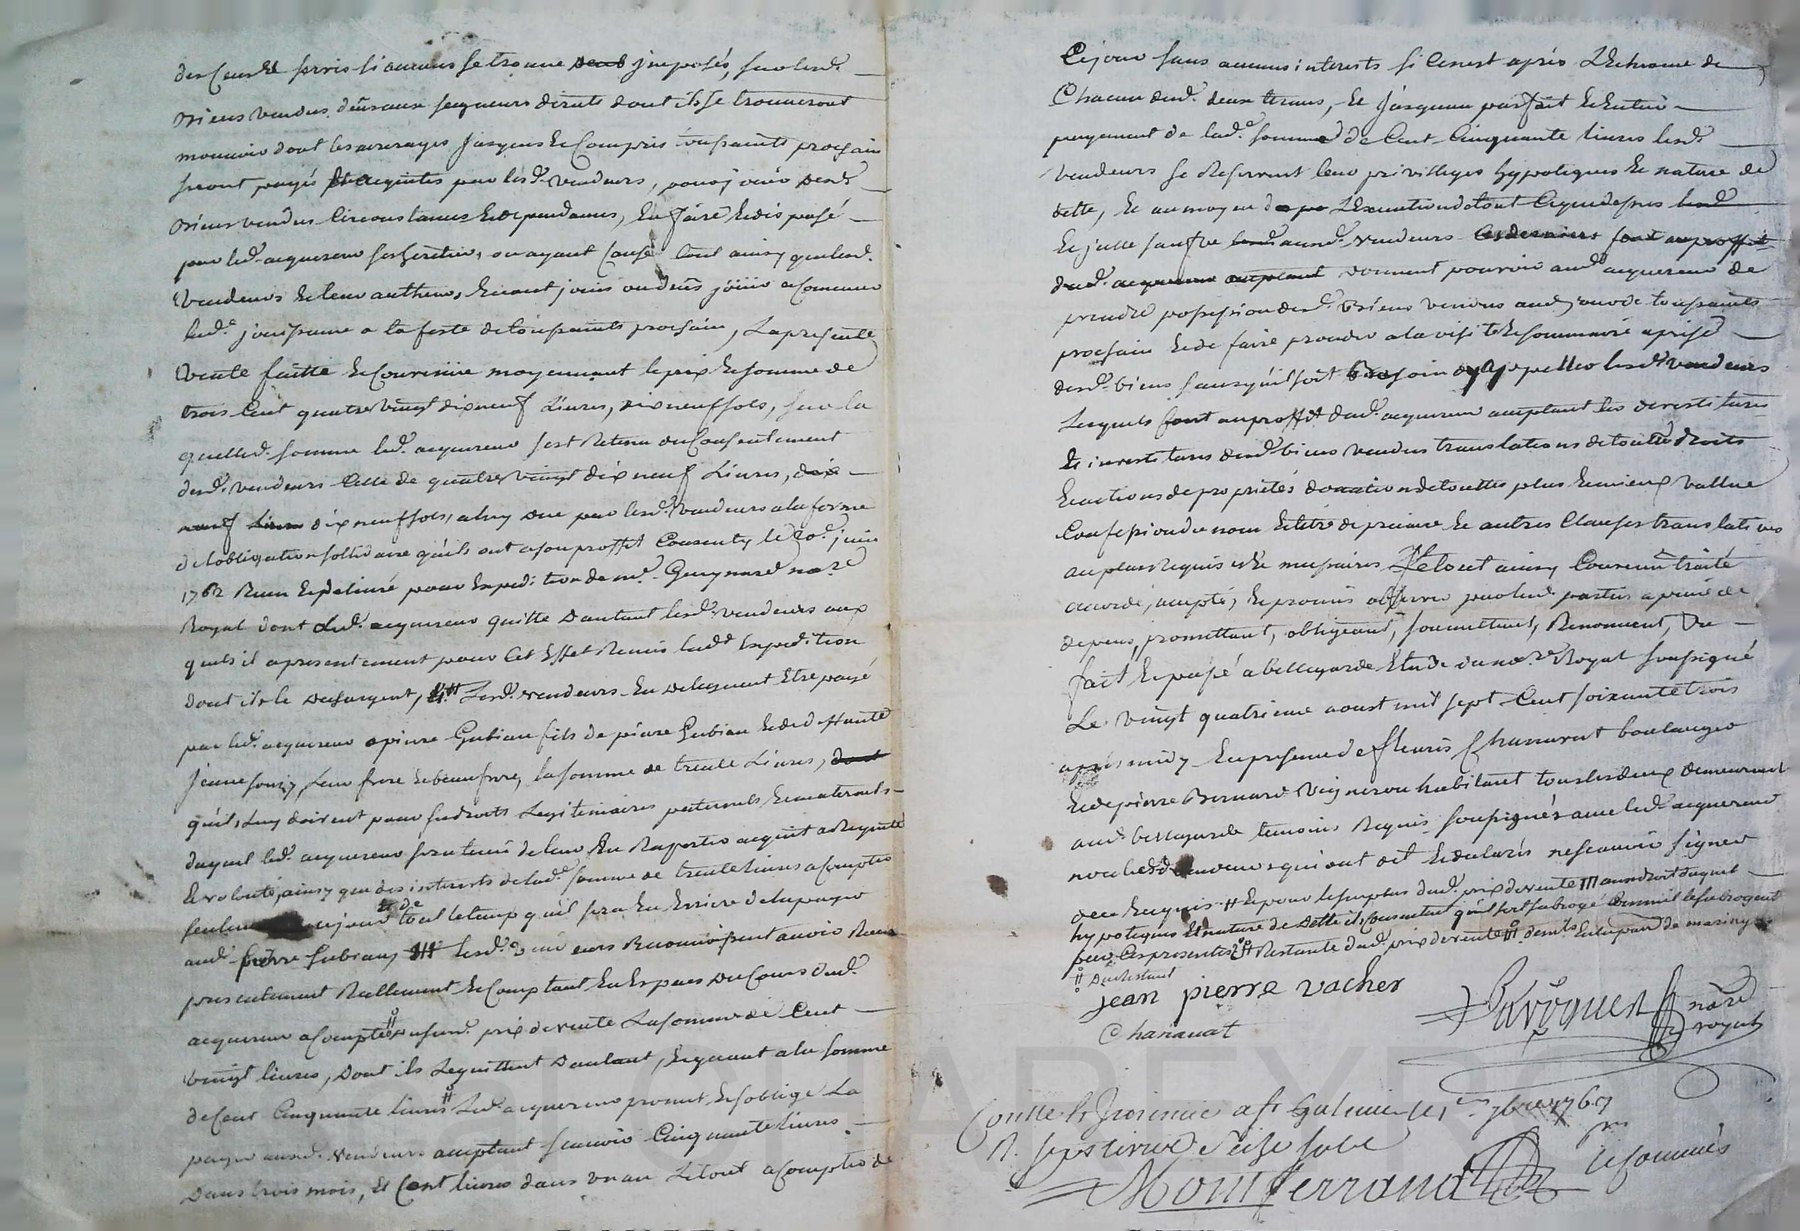 des Cens Et servis si aucuns se trouve deub imposés, sur lesd.
Biens vendus, deus aux seigneurs directs dont ils se trouveront
mouvoir dont les arrerages jusques Et Compris toussaints prochain
seront payés Et acquités par lesd. vendeurs, pour jouir desd.
Biens vendus Circonstances Et dependances, En faire Et disposé
par led. acquereur ses heritiers, ou ayant Cause tout ainsy que lesd.
Vendeurs Et leur autheurs, En ont jouis ou deus jouir a Commencer
lad.e jouissance a la feste de toussaints prochain, La presente
Vente faitte Et Convenue moyennant le prix Et somme de
trois Cent quatre vingt dix neuf Livres, dix neuf sols, sur la
quelle d. somme led. acquereur s'est Retenu du Consentement
desd. vendeurs Celle de quatre vingt dix neuf Livres, dix
neuf Livres dix neuf sols, a luy due par lesd. vendeurs a la forme
de l'obligation sollidaire qu'ils ont a son proffit Consenty le 20.e juin
1762 Receu Et delivré pour Expedition de m.e Guignard no.re
Royal dont led. acquereur quitte D'autant lesd. vendeurs aux
quels il a presentement pour Cet Effet Remis lad.e Expedition
dont ils le dechargent, Lesd. vendeurs En deleguent Etre payé
par led. acquereur a pierre Gubian fils de pierre Gubian Et de deffunte
Jeanne leur frere Et beaufrere, la somme de trente Livres, dont
qu'ils luy doivent pour ses droits Legitimaires paternels Et maternels
duquel led. acquereur sera tenu de leur En Raporter acquit a Requete
Et volonté, ainsy que des interests de lad.e somme de trente livres a Compter
seulement tout le temps qu'il sera En Arriere de la payer
aud. pierre Gubian, lesd. vendeurs Reconnoissent avoir Receu
presentement Reellement Et Comptant En Especes Du Cours dud.
acquereur a Compte dud. prix de vente La somme de Cent
vingt livres, Dont ils Le quittent D'autant, Et quant a la somme
de Cent Cinquante livres Led. acquereur promet Et s'oblige La
payer auxd. vendeurs acceptant scavoir Cinquante livres
Dans trois mois, Et Cent livres dans un an Le tout a Compter de
Ce jour sans aucuns interests si Ce n'est après L'Echeance de
Chacun desd. deux termes, Et jusqu'au parfait Et Entier
payement de lad.e somme de Cent Cinquante livres lesd.
vendeurs se Reservent leur privilleges hypotèques Et nature de
dette, Et au moyen de L'Execution de tout Ce que dessus lesd.
Et jusse sauf auxd. vendeurs Ces derniers font au proffit
dud. acquereur acceptant donnent pouvoir aud. acquereur de
prendre possession desd. Biens vendus aud. jour de toussaints
prochain Et de faire proceder a la visite Et sommaire aprise
desd. biens sans qu'il soit Besoin d'y appeller lesd. vendeurs
Lesquels font au proffit dud. acquereur acceptant les devestitures
Et investitures desd. biens vendus translations de toutes droits
Et actions de proprietés donation de touttes plus Et mieux Vallue
Confession de nom Et titre de precaire Et autres Clauses translatives
au plus Requis Et necessaires Le tout ainsy Convenu traité
accordé, accepté, Et promis observer par lesd. parties a peine de
depens, promettant, obligeant, soumettant, Renonceant, &c
fait Et passé a bellegarde Etude du no.re Royal soussigné
Le vingt quatrieme aoust mil sept Cent soixante trois
après midy En presence de fleuris Chanavat boulanger
Et de pierre Bernard Vigneron habitant tous les deux demeurant
aud. bellegarde temoins Requis soussignés avec led. acquereur
non lesd. vendeurs qui ont dit Et declarés ne scavoir signer
de ce Enquis. Et pour le surplus dud. prix de vente aux droits duquel
hypoteques Et nature de Dette ils Consentent qu'il soit subrogé Comme ils le subrogent
par Ces presentes Restante dud. prix de vente
du Restant
jean pierre vacher
Chanavat
no.re
royal
Montferrand